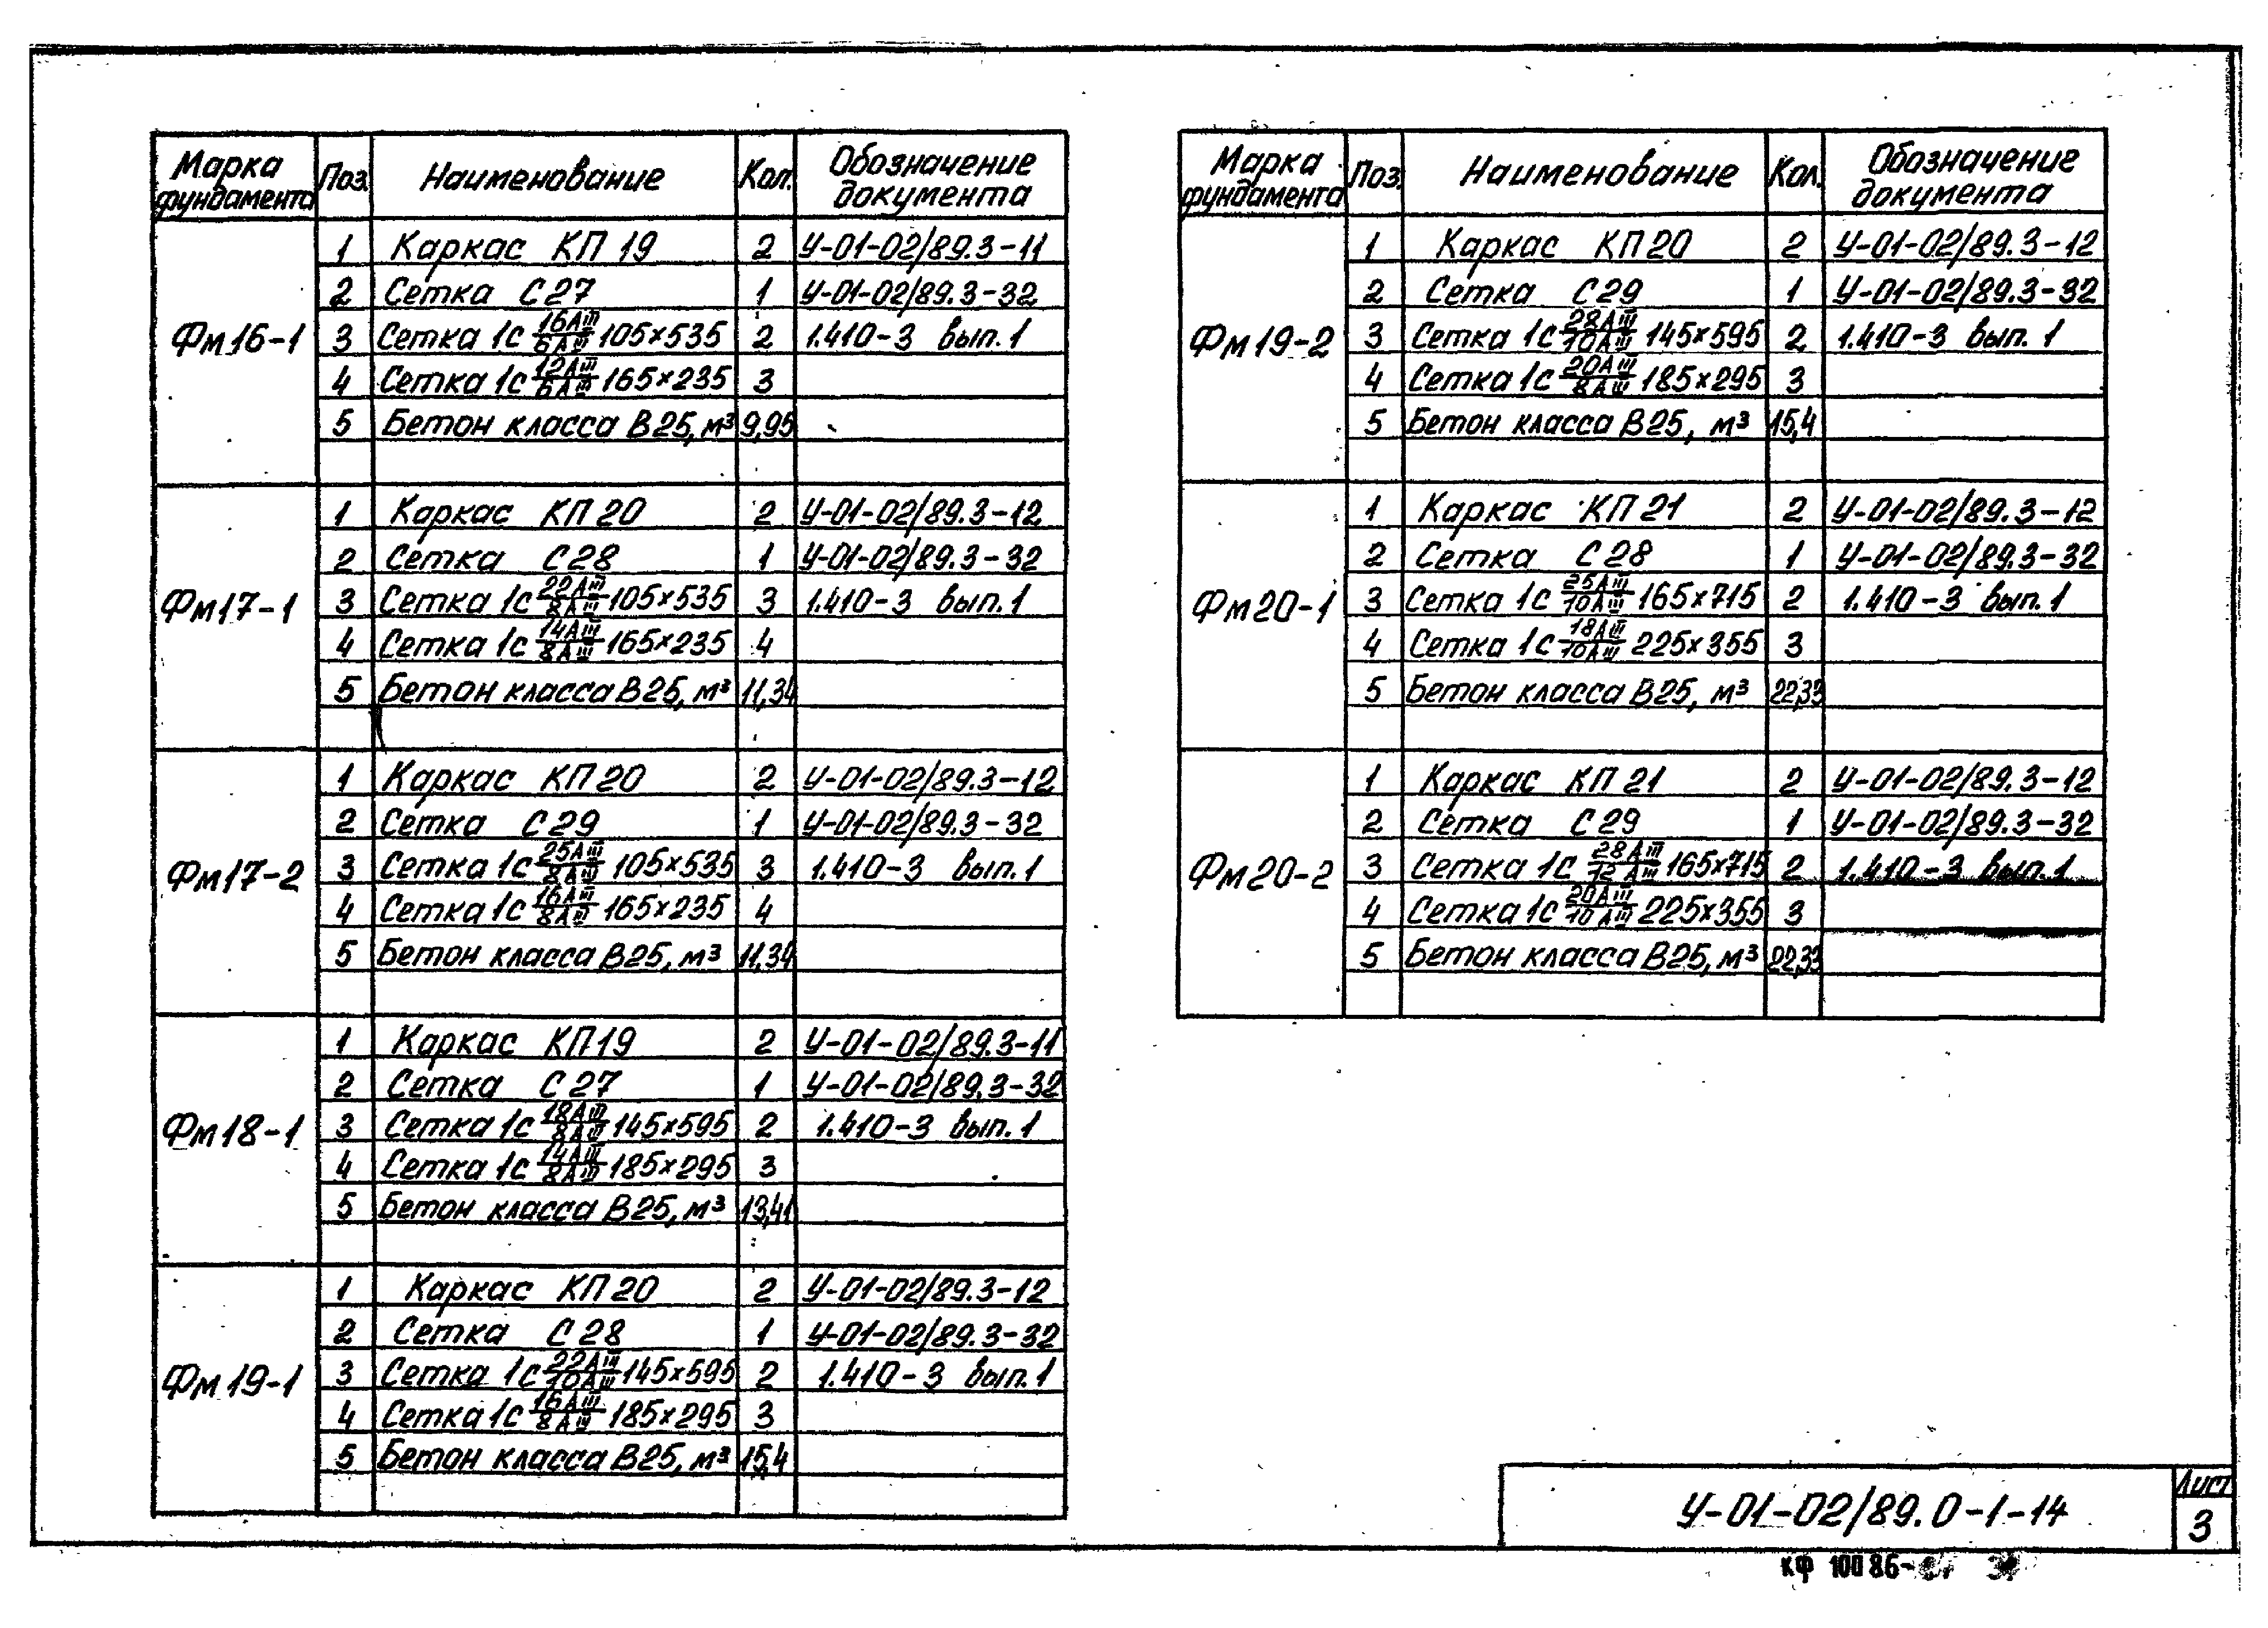 Марка фундамента Поз. Наименование Кол. Обозначение документа
Фм16-1
1 Каркас КП 19 2 У-01-02/89.3-11
2 Сетка С27 1 У-01-02/89.3-32
3 Сетка 1с 16АIII/6АIII 105×535 2 1.410-3 вып. 1
4 Сетка 1с 12АIII/6АIII 165×235 3
5 Бетон класса В25, м³ 9,95
Фм17-1
1 Каркас КП 20 2 У-01-02/89.3-12
2 Сетка С28 1 У-01-02/89.3-32
3 Сетка 1с 22АIII/8АIII 105×535 3 1.410-3 вып. 1
4 Сетка 1с 14АIII/8АIII 165×235 4
5 Бетон класса В25, м³ 11,34
Фм17-2
1 Каркас КП20 2 У-01-02/89.3-12
2 Сетка С29 1 У-01-02/89.3-32
3 Сетка 1с 25АIII/8АIII 105×535 3 1.410-3 вып. 1
4 Сетка 1с 16АIII/8АIII 165×235 4
5 Бетон класса В25, м³ 11,34
Фм18-1
1 Каркас КП19 2 У-01-02/89.3-11
2 Сетка С27 1 У-01-02/89.3-32
3 Сетка 1с 18АIII/8АIII 145×595 2 1.410-3 вып. 1
4 Сетка 1с 14АIII/8АIII 185×295 3
5 Бетон класса В25, м³ 13,41
Фм19-1
1 Каркас КП20 2 У-01-02/89.3-12
2 Сетка С28 1 У-01-02/89.3-32
3 Сетка 1с 22АIII/10АIII 145×595 2 1.410-3 вып. 1
4 Сетка 1с 16АIII/8АIII 185×295 3
5 Бетон класса В25, м³ 15,4
Марка фундамента Поз. Наименование Кол. Обозначение документа
Фм19-2
1 Каркас КП20 2 У-01-02/89.3-12
2 Сетка С29 1 У-01-02/89.3-32
3 Сетка 1с 28АIII/10АIII 145×595 2 1.410-3 вып. 1
4 Сетка 1с 20АIII/8АIII 185×295 3
5 Бетон класса В25, м³ 15,4
Фм20-1
1 Каркас КП21 2 У-01-02/89.3-12
2 Сетка С28 1 У-01-02/89.3-32
3 Сетка 1с 25АIII/10АIII 165×715 2 1.410-3 вып. 1
4 Сетка 1с 18АIII/10АIII 225×355 3
5 Бетон класса В25, м³ 22,33
Фм20-2
1 Каркас КП 21 2 У-01-02/89.3-12
2 Сетка С29 1 У-01-02/89.3-32
3 Сетка 1с 28АIII/12АIII 165×715 2 1.410-3 вып. 1
4 Сетка 1с 20АIII/10АIII 225×355 3
5 Бетон класса В25, м³ 22,33
У-01-02/89.0-1-14
Лист
3
КФ 10086-